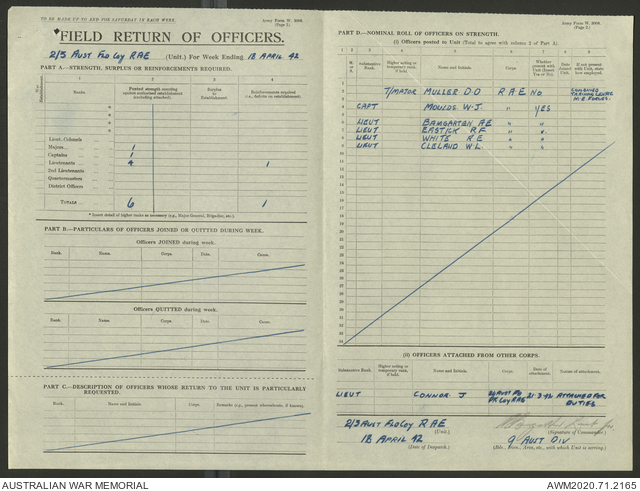 TO BE MADE UP TO AND FOR SATURDAY IN EACH WEEK.
Army Form W. 3008.
(Page 1.)
*FIELD RETURN OF OFFICERS.
2/3 AUST FLD COY RAE (Unit.) For Week Ending 18 APRIL 42
PART A.—STRENGTH, SURPLUS OR REINFORCEMENTS REQUIRED.
1 2 3 4
Ranks.
Posted strength counting against authorized establishment (excluding attached).
Surplus to Establishment.
Reinforcements required
Lieut. Colonels
Majors 1
Captains 1
Lieutenants 4 1
2nd Lieutenants
Quartermasters
District Officers
TOTALS 6 1
* Insert detail of higher ranks as necessary (e.g., Major-General, Brigadier, etc.).
PART B.—PARTICULARS OF OFFICERS JOINED OR QUITTED DURING WEEK.
Officers JOINED during week.
Rank. Name. Corps. Date. Cause.
Officers QUITTED during week.
Rank. Name. Corps. Date. Cause.
PART C.—DESCRIPTION OF OFFICERS WHOSE RETURN TO THE UNIT IS PARTICULARLY REQUESTED.
Rank. Name and Initials. Corps. Remarks (e.g., present whereabouts, if known).
Army Form W. 3008.
(Page 2.)
PART D.—NOMINAL ROLL OF OFFICERS ON STRENGTH.
(i) Officers posted to Unit (Total to agree with column 2 of Part A).
Substantive Rank. Higher acting or temporary rank, if held. Name and Initials. Corps. Whether present with Unit (Insert Yes or No). Date joined Unit. If not present with Unit, state how employed.
T/MAJOR MULLER D.O RAE NO COMBINED TRAINING CENTRE M.E. FORCES.
CAPT MOULDS W.J " YES
LIEUT BAMGARTEN A E " "
LIEUT EASTICK R F " "
LIEUT WHITE R E " "
LIEUT CLELAND W L " "
(ii) OFFICERS ATTACHED FROM OTHER CORPS.
Substantive Rank. Higher acting or temporary rank, if held. Name and Initials. Corps. Date of attachment. Nature of attachment.
LIEUT CONNOR J 2/1 AUST FD PK COY RAE 21-3-42 ATTACHED FOR DUTIES
2/3 AUST FLD COY RAE
(Unit.) (Signature of Commander.)
18 APRIL 42 9 AUST DIV
(Date of Despatch.) (Bde., Divn., Area, etc., with which Unit is serving.)
AUSTRALIAN WAR MEMORIAL AWM2020.71.2165